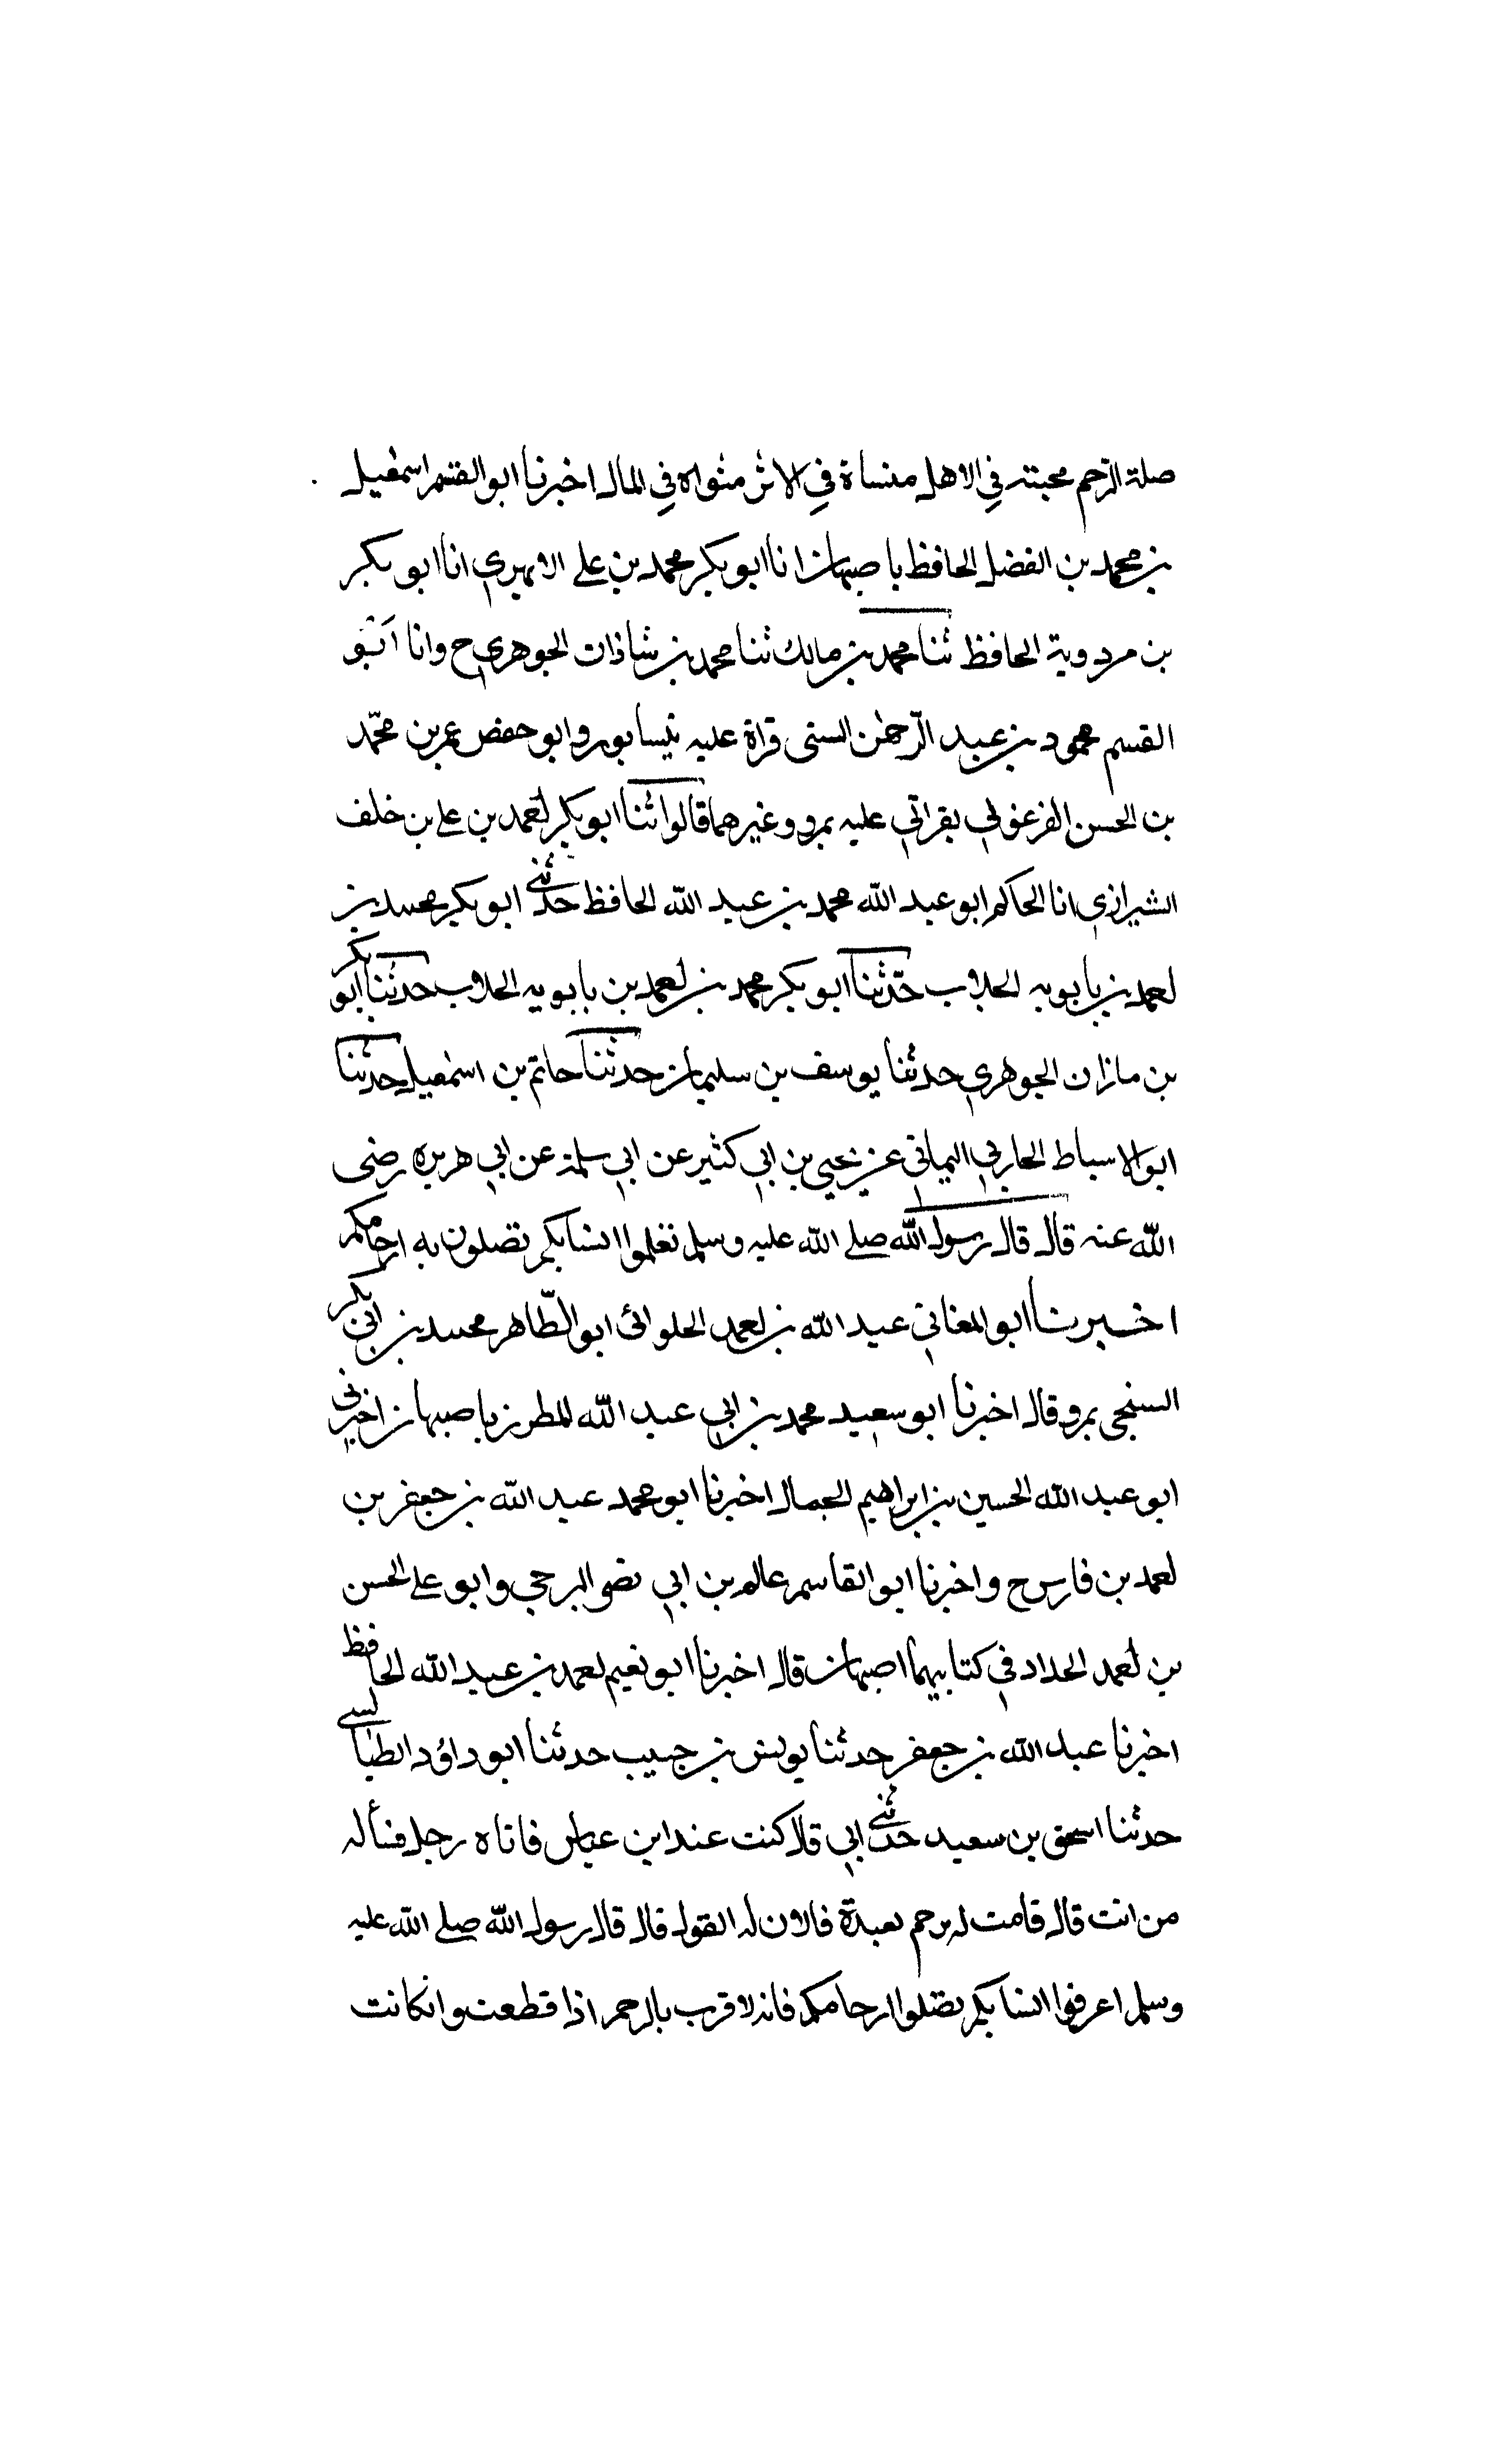 صلة الرحم محبته في الاهل منساة في الاثر مثواه في المال اخبرنا ابو القسم اسمعيل
بن محمد بن الفضل الحافظ باصبهان انا ابو بكر محمد بن علي الابهري انا ابو بكر
بن مردوية الحافظ ثنا محمد بن مالك ثنا محمد بن شاذان الجوهري ح وانا ابو
القسم محمود بن عبد الرحمن البستي قراة عليه بنيسابور وابو حفص عمر بن محمد
بن الحسن الفرغولي بقراتي عليه بمرو وغيرهما قالوا ثنا ابو بكر احمد بن علي بن خلف
الشيرازي انا الحاكم ابو عبد الله محمد بن عبد الله الحافظ حدثني ابو بكر محمد بن
احمد بن بابويه الجلاب حدثنا ابو بكر محمد بن احمد بن بابويه الجلاب حدثنا ابو بكر
بن مازان الجوهري حدثنا يوسف بن سليمان حدثنا حاتم بن اسمعيل حدثنا
ابو الاسباط الحاربي اليماني عن يحيى بن ابي كثير عن ابي سلمة عن ابي هريرة رضى
الله عنه قال قال رسول الله صلى الله عليه وسلم تعلموا انسابكم تصلون به ارحامكم
اخبرنا ابو المعاني عبد الله بن احمد الحلوائى ابو الطاهر محمد بن ابي بكر
السنجى بمرو قال اخبرنا ابو سعيد محمد بن ابي عبد الله المطرز باصبهان اخبرني
ابو عبد الله الحسين بن ابراهيم الجمال اخبرنا ابو محمد عبد الله بن جعفر بن
احمد بن فارس ح واخبرنا ابو القاسم غانم بن ابي نصر البرجي وابو علي الحسن
بن احمد الحداد في كتابيهما اصبهان قال اخبرنا ابو نعيم احمد بن عبد الله الحافظ
اخبرنا عبد الله بن جعفر حدثنا يونس بن حبيب حدثنا ابو داؤد الطيالسي
حدثنا اسحق بن سعيد حدثني ابي قال كنت عند ابن عباس فاتاه رجل فسأله
من انت قال فامت له برحم بعيدة فالان له القول قال قال رسول الله صلى الله عليه
وسلم اعرفوا انسابكم تصلوا ارحامكم فانه لا قرب بالرحم اذا قطعت وان كانت